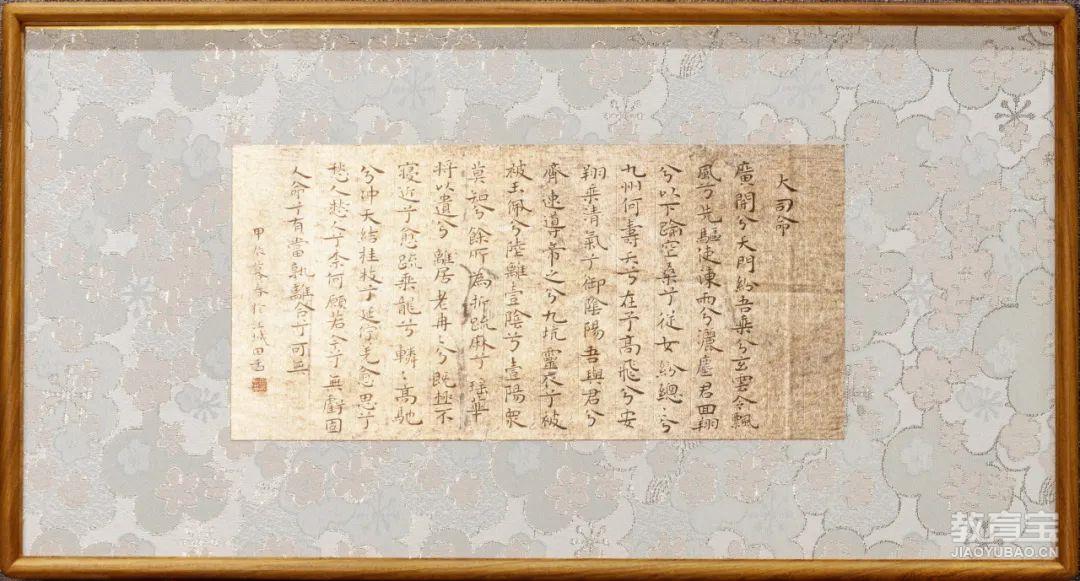 大司命
廣開兮天門紛吾乘兮玄雲令飄
風兮先驅使涷雨兮灑塵君回翔
兮以下踰空桑兮從女紛總〻兮
九州何壽夭兮在予高飛兮安
翔乘清氣兮御陰陽吾與君兮
齊速導帝之兮九坑靈衣兮被
被玉佩兮陸離壹陰兮壹陽眾
莫知兮餘所為折疏麻兮瑤華
將以遺兮離居老冉〻兮既極不
寖近兮愈疏乘龍兮轔〻高馳
兮沖天結桂枝兮延佇羌愈思兮
愁人愁人兮奈何願若今兮無虧固
人命兮有當孰離合兮可無
甲辰暮春於江城田書
教育宝
JIAOYUBAO.CN